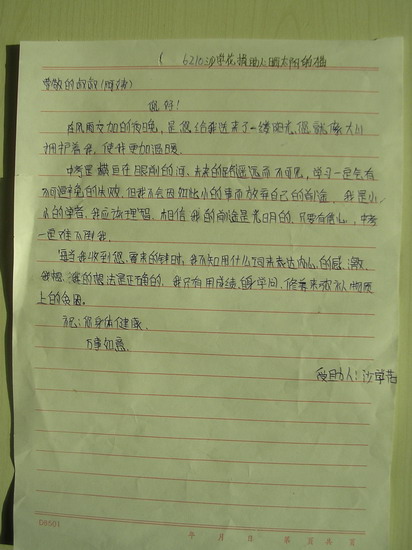 ( 6210沙学花 捐助人晒太阳的猫
尊敬的叔叔(阿姨)
您好!
在风雨交加的夜晚,是您给我送来了一缕阳光,您就像大山
拥护着我,使我更加温暖。
中考是横亘在眼前的河,未来的路遥远而不可见,学习一定会有
不可避免的失败,但我不会因如此小的事而放弃自己的前途,我是小小
的学者,我应该理智,相信我的前途是光明的,只要有信心,中考
一定难不倒我。
每当我收到您寄来的钱时,我不知用什么词来表达内心的感激,
我想,我的想法是正确的,我只有用成绩,的学问,修养来弥补物质
上的贫困。
祝:您身体健康
万事如意
受助人:沙学花
D9501 年 月 日 第 页 共 页